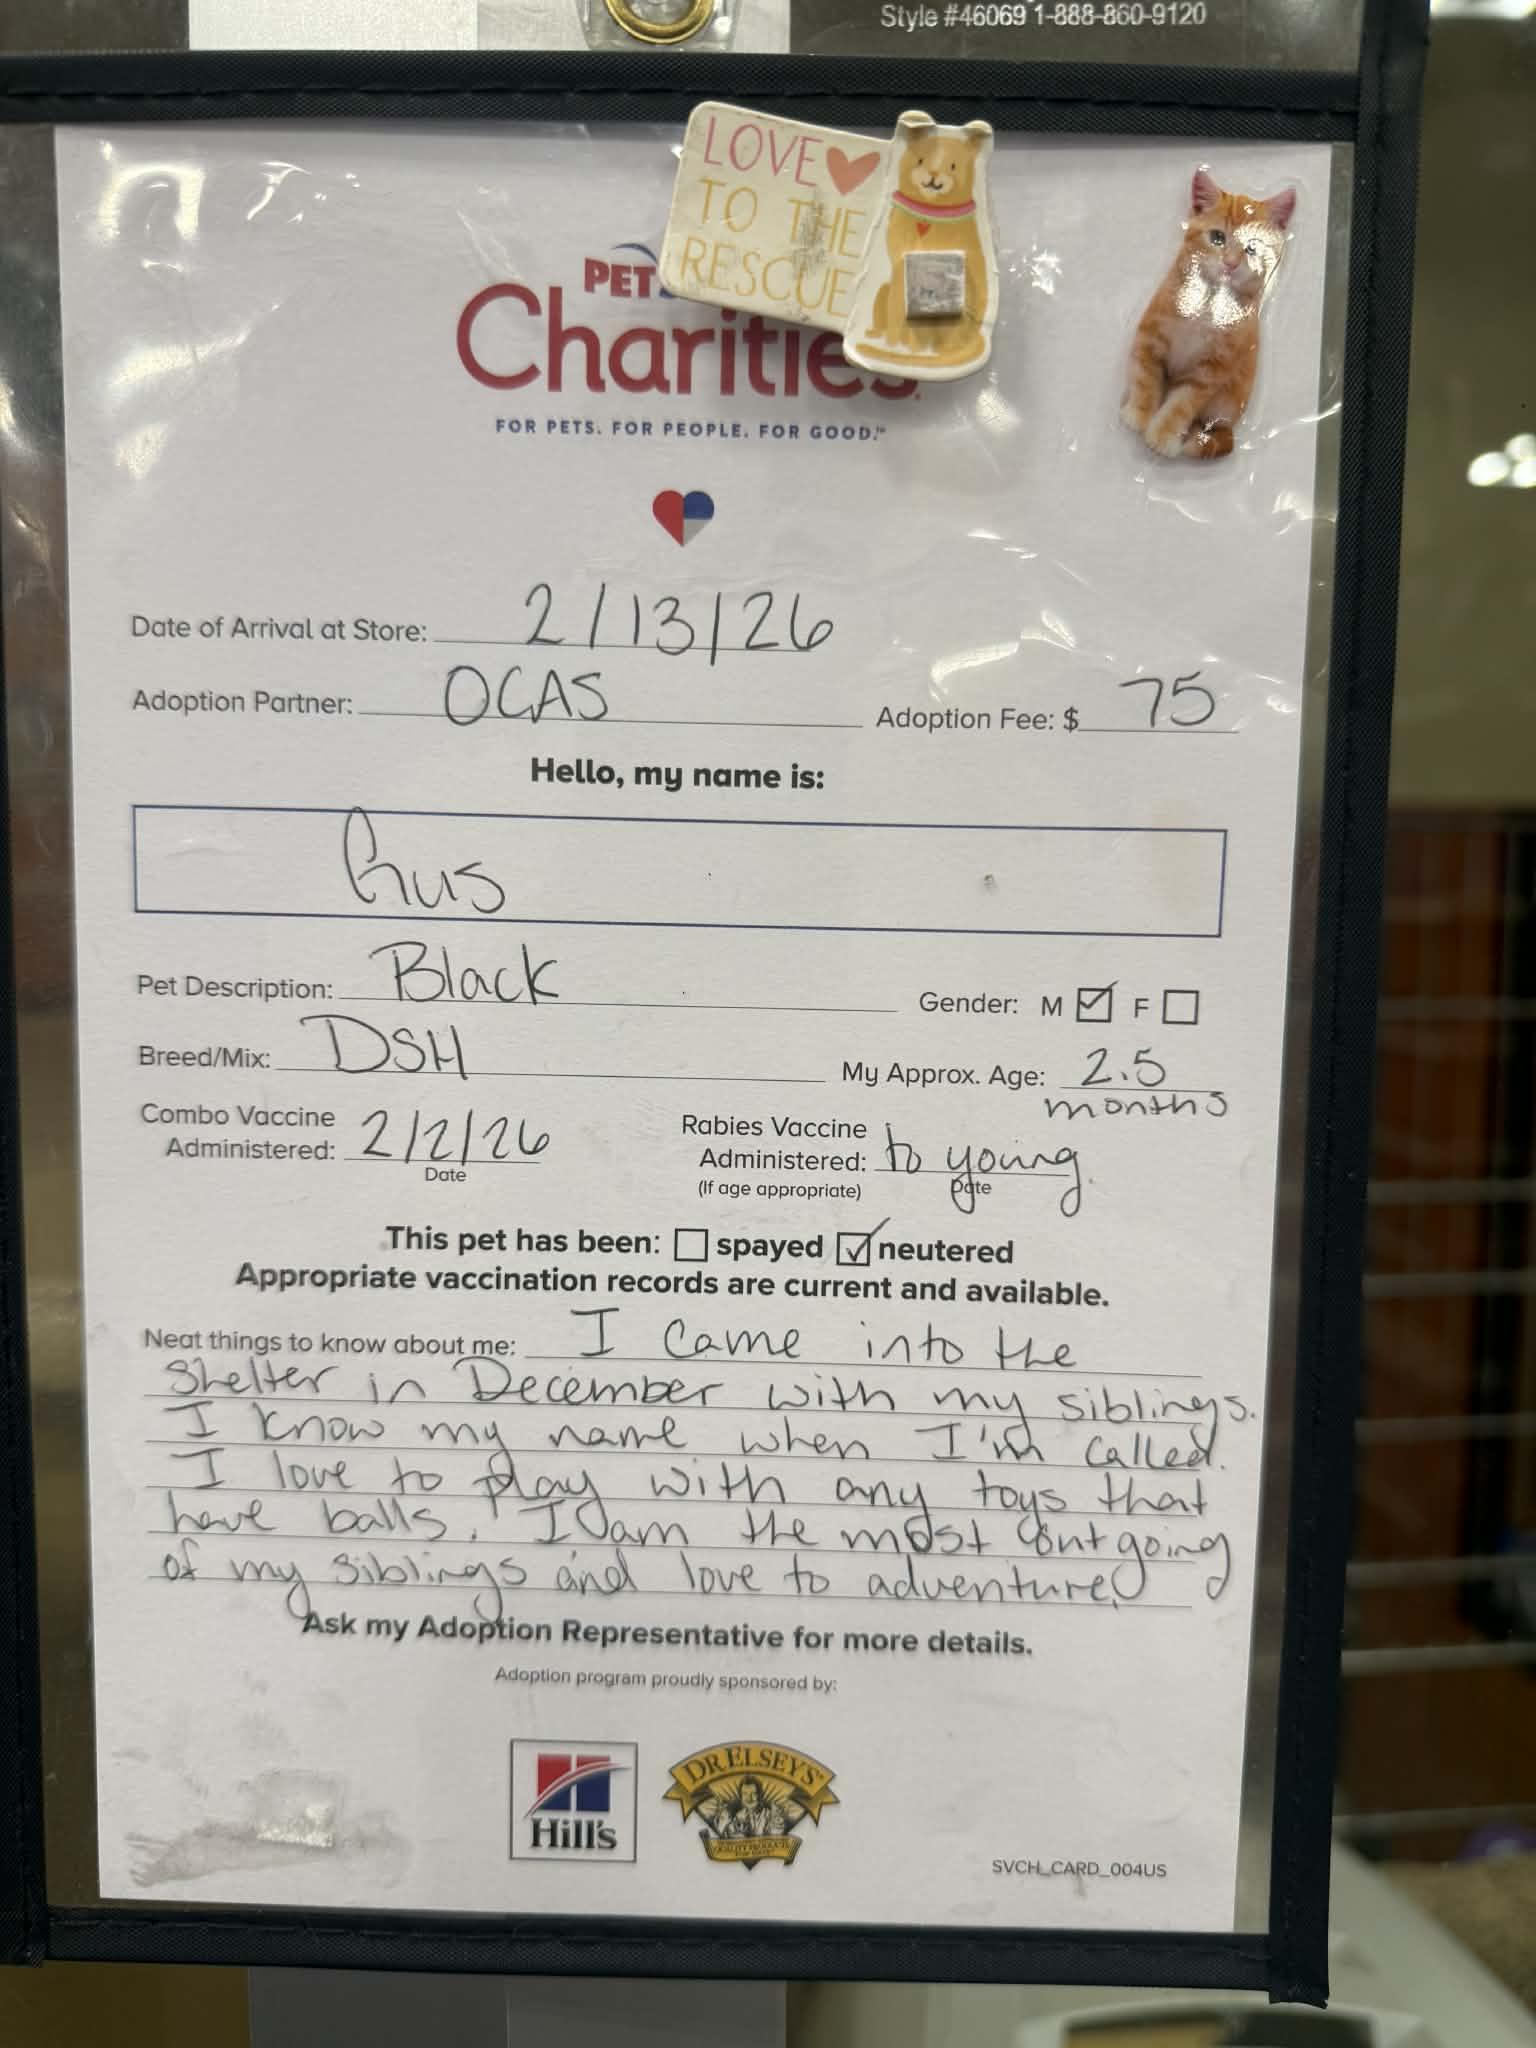 Style #46069 1-888-860-9120
LOVE
TO THE
RESCUE
PET
Charities
FOR PETS. FOR PEOPLE. FOR GOOD.™
Date of Arrival at Store: 2/13/26
Adoption Partner: OCAS Adoption Fee: $ 75
Hello, my name is:
Gus
Pet Description: Black Gender: M F
Breed/Mix: DSH My Approx. Age: 2.5
months
Combo Vaccine
Administered: 2/2/26
Date
Rabies Vaccine
Administered: to young
(If age appropriate) Date
This pet has been: spayed neutered
Appropriate vaccination records are current and available.
Neat things to know about me: I came into the
shelter in December with my siblings.
I know my name when I'm called.
I love to play with any toys that
have balls. I am the most outgoing
of my siblings and love to adventure.
Ask my Adoption Representative for more details.
Adoption program proudly sponsored by:
Hill's
DR ELSEY'S
SVCH_CARD_004US